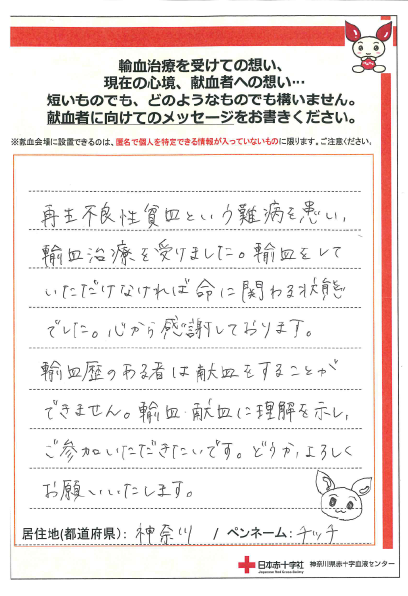 輸血治療を受けての想い、
現在の心境、献血者への想い…
短いものでも、どのようなものでも構いません。
献血者に向けてのメッセージをお書きください。
※献血会場に設置できるのは、匿名で個人を特定できる情報が入っていないものに限ります。ご注意ください。
再生不良性貧血という難病を患い、
輸血治療を受けました。輸血をして
いただけなければ命に関わる状態
でした。心から感謝しております。
輸血歴のある者は献血をすることが
できません。輸血・献血に理解を示し、
ご参加いただきたいです。どうか、よろしく
お願いいたします。
居住地(都道府県): 神奈川 / ペンネーム: チッチ
日本赤十字社 神奈川県赤十字血液センター
Japanese Red Cross Society